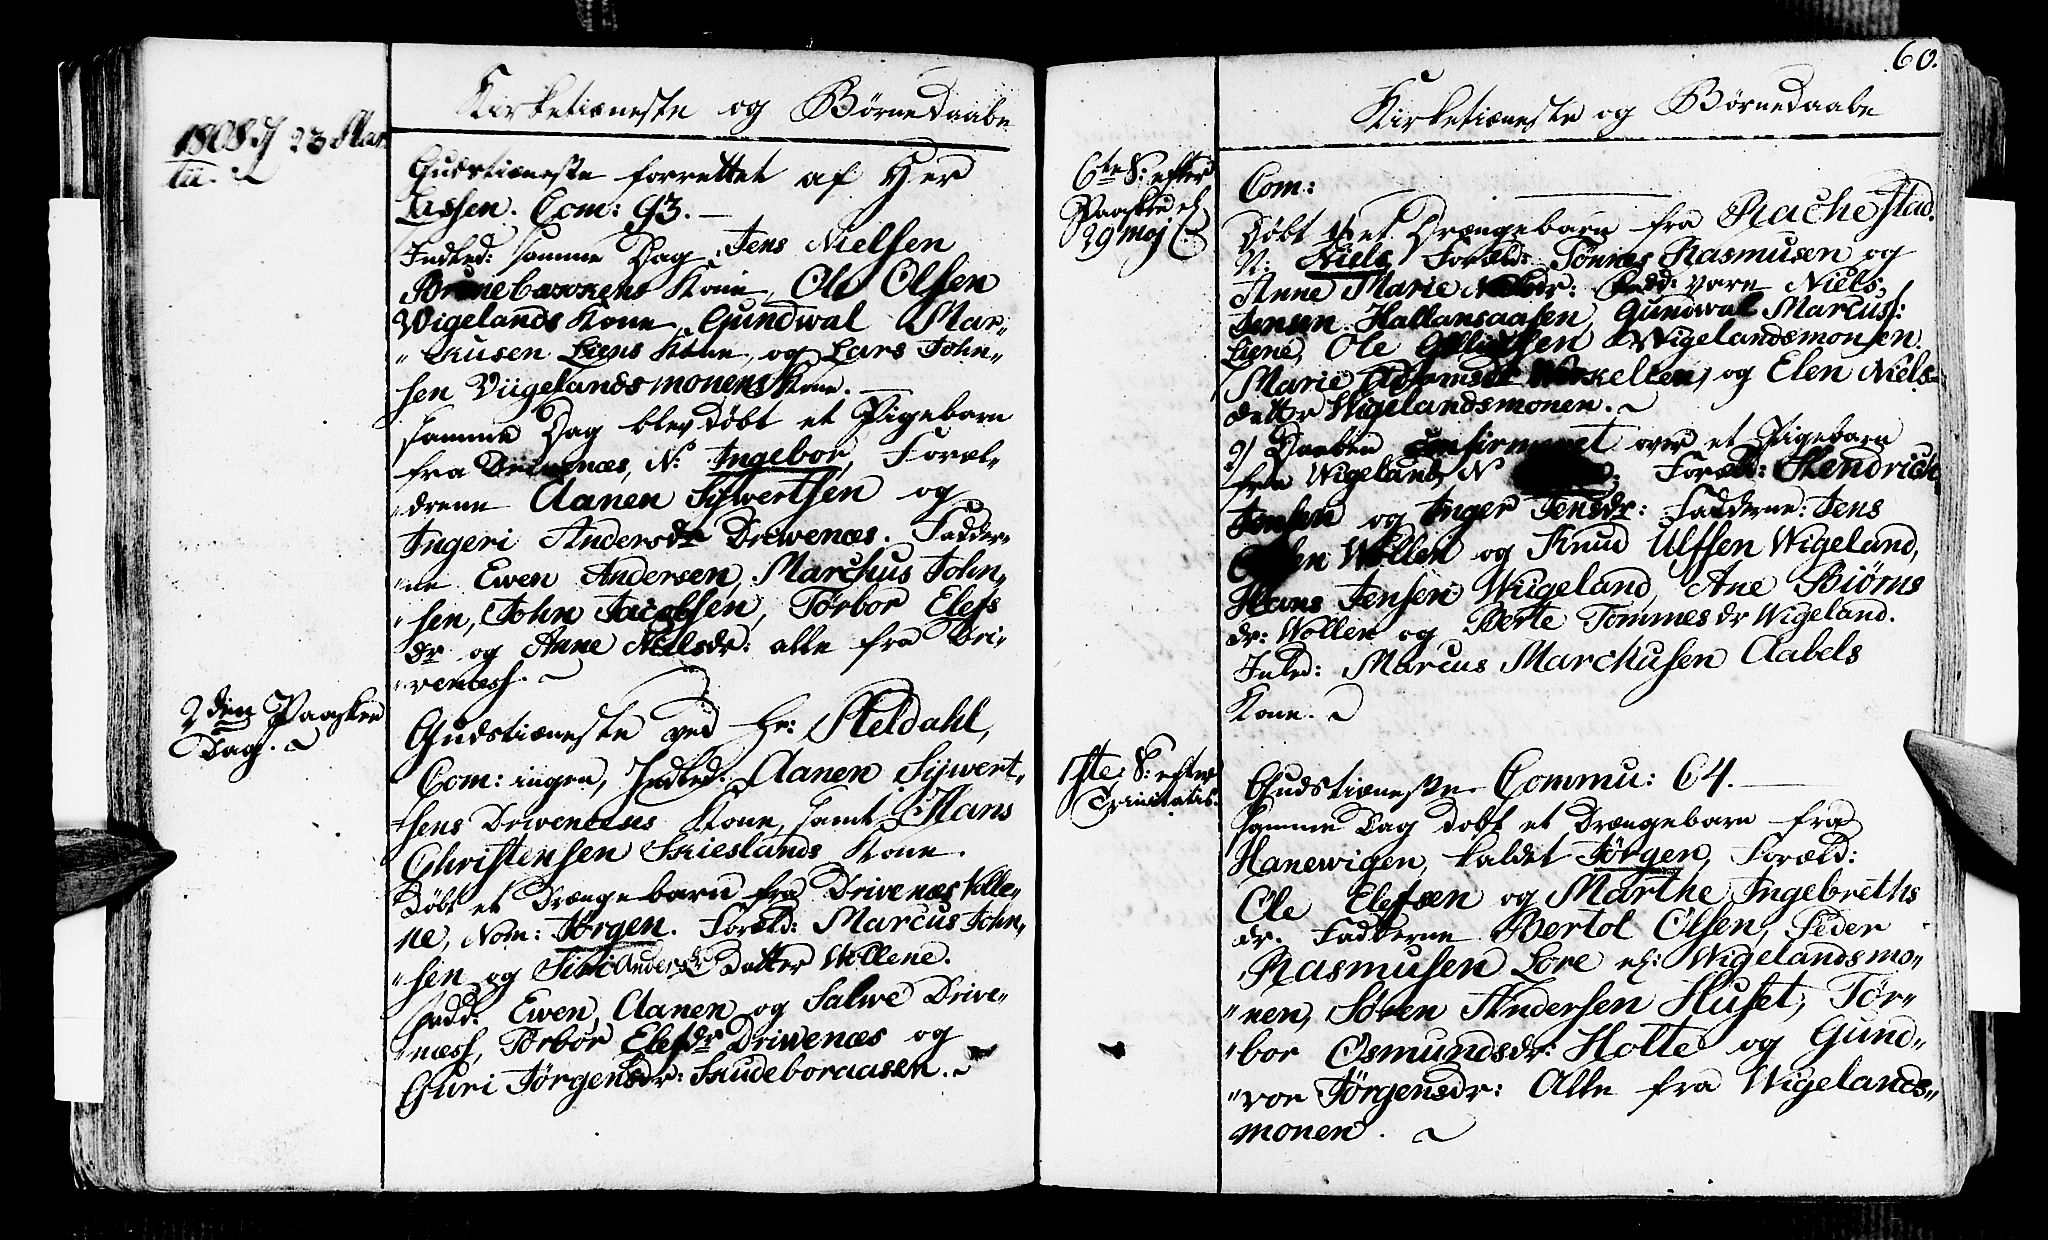 Kirketieneste og Børnedaabe
1808 d 23 Mar
tii.
Gudstieneste forrettet af Her
Lassen. Com: 93.
Indled: samme Dag Jens Nielsen
Kone, Ole Olsen
Wigelands Kone, Gundwal Mar„
„kusen Liens Kone, og Lars John„
sen Viigelandsmonens Kone.
samme Dag blev døbt et Pigebarn
fra Drivenæs, N: Ingebor, Foræl„
„drene Aanen Sijwertsen og
Ingeri Andersdr Driwenæs. Fadder„
„ne Ewen Andersen, Marchus John„
„sen, John Jacobsen, Torbor Elefs
dr og Anne Nielsdr: alle fra Dri„
„venæss.
2den Paaske
Dag.
Gudstieneste ved Hr: Heldahl,
Com: ingen, Indled: Aanen Sijwert„
„sens Drwenæs Kone, samt Hans
Christensen Skieslands Kone.
Døbt et Drængebarn fra Drivenæs Volle„
ne, Nom: Jørgen. Foræld: Marcus John„
„sen og Siri Andersdr Datter Wollene.
Fadd: Ewen, Aanen og Salwe Drive„
„næss, Torbor Elefsdr Driwenæs og
Guri Jørgensdr: Skudeboraasen.
60.
Kirketieneste og Børnedaabe
6te S: efter
Paaske
29 Maj
Com:
Døbt 1) et Drængebarn fra Rachestad.
N: Niels Foræld: Tønnes Rasmusen og
Anne Marie Nielsdr: Fadd: vare Niels
Jensen Hallansaasen, Gundwal Marcus:
Liene, Ole Wigelandsmonsen.
Marie og Elen Niels„
datter Wigelandsmonen.
2) Daaben confirmeret over et Pigebarn
fra Wigeland, N Foræld: Hendrich
Jensen og Inger Jensdr: Fadderne: Jens
Wollen og Knud Ulfsen Wigeland,
Hans Jensen Wiigeland, Ane Biørns
dr: Wollen og Berte Tommesdr Wigeland.
Inled: Marcus Marchusen Aabels
Kone.
1ste S: efter
Trinitatis.
Gudstieneste Commu: 64.
samme Dag døbt et Drængebarn fra
Hanewigen, kaldet Jørgen, Foræld:
Ole Elefsen og Marthe Ingebreths
dr. Fadderne Bertol Olsen, Peder
Rasmusen Lore Wigelandsmo„
„nen, Søren Andersen Huset, Tor„
„bor Osmundsdr: Holte og Gund„
„vor Jørgensdr: Alle fra Wigelands„
monen.